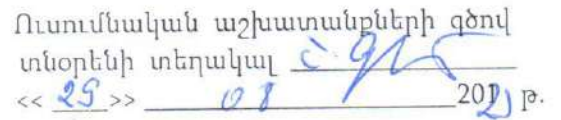 Ուսումնական աշխատանքների գծով
տնօրենի տեղակալ
<< 29 >> 08 202 թ.